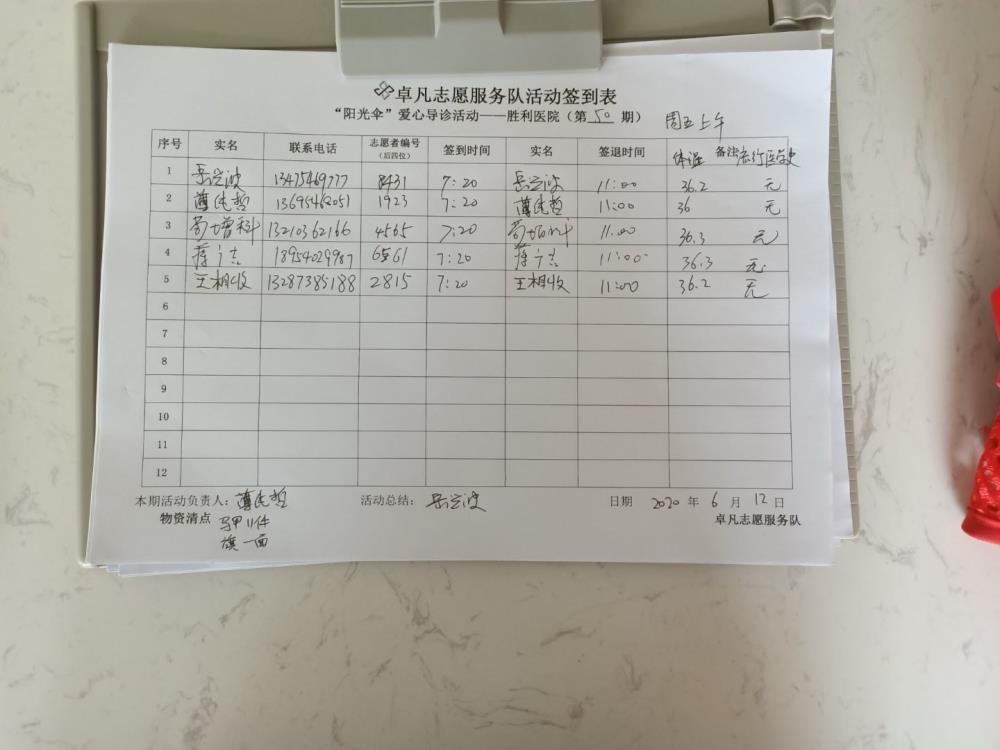 卓凡志愿服务队活动签到表
“阳光伞”爱心导诊活动——胜利医院（第 50 期） 周五上午
序号 实名 联系电话 志愿者编号（后四位） 签到时间 实名 签退时间 体温 备注
1 岳兰波 13475469777 8431 7:20 岳兰波 11:00 36.2 无
2 13695462051 1923 7:20 11:00 36 无
3 13210362166 4565 7:20 11:00 36.3 无
4 蒋 18954029987 6561 7:20 蒋 11:00 36.3 无
5 王相收 13287385188 2815 7:20 王相收 11:00 36.2 无
6
7
8
9
10
11
12
本期活动负责人： 活动总结： 岳兰波 日期 2020 年 6 月 12 日
物资清点 马甲11件 卓凡志愿服务队
旗一面